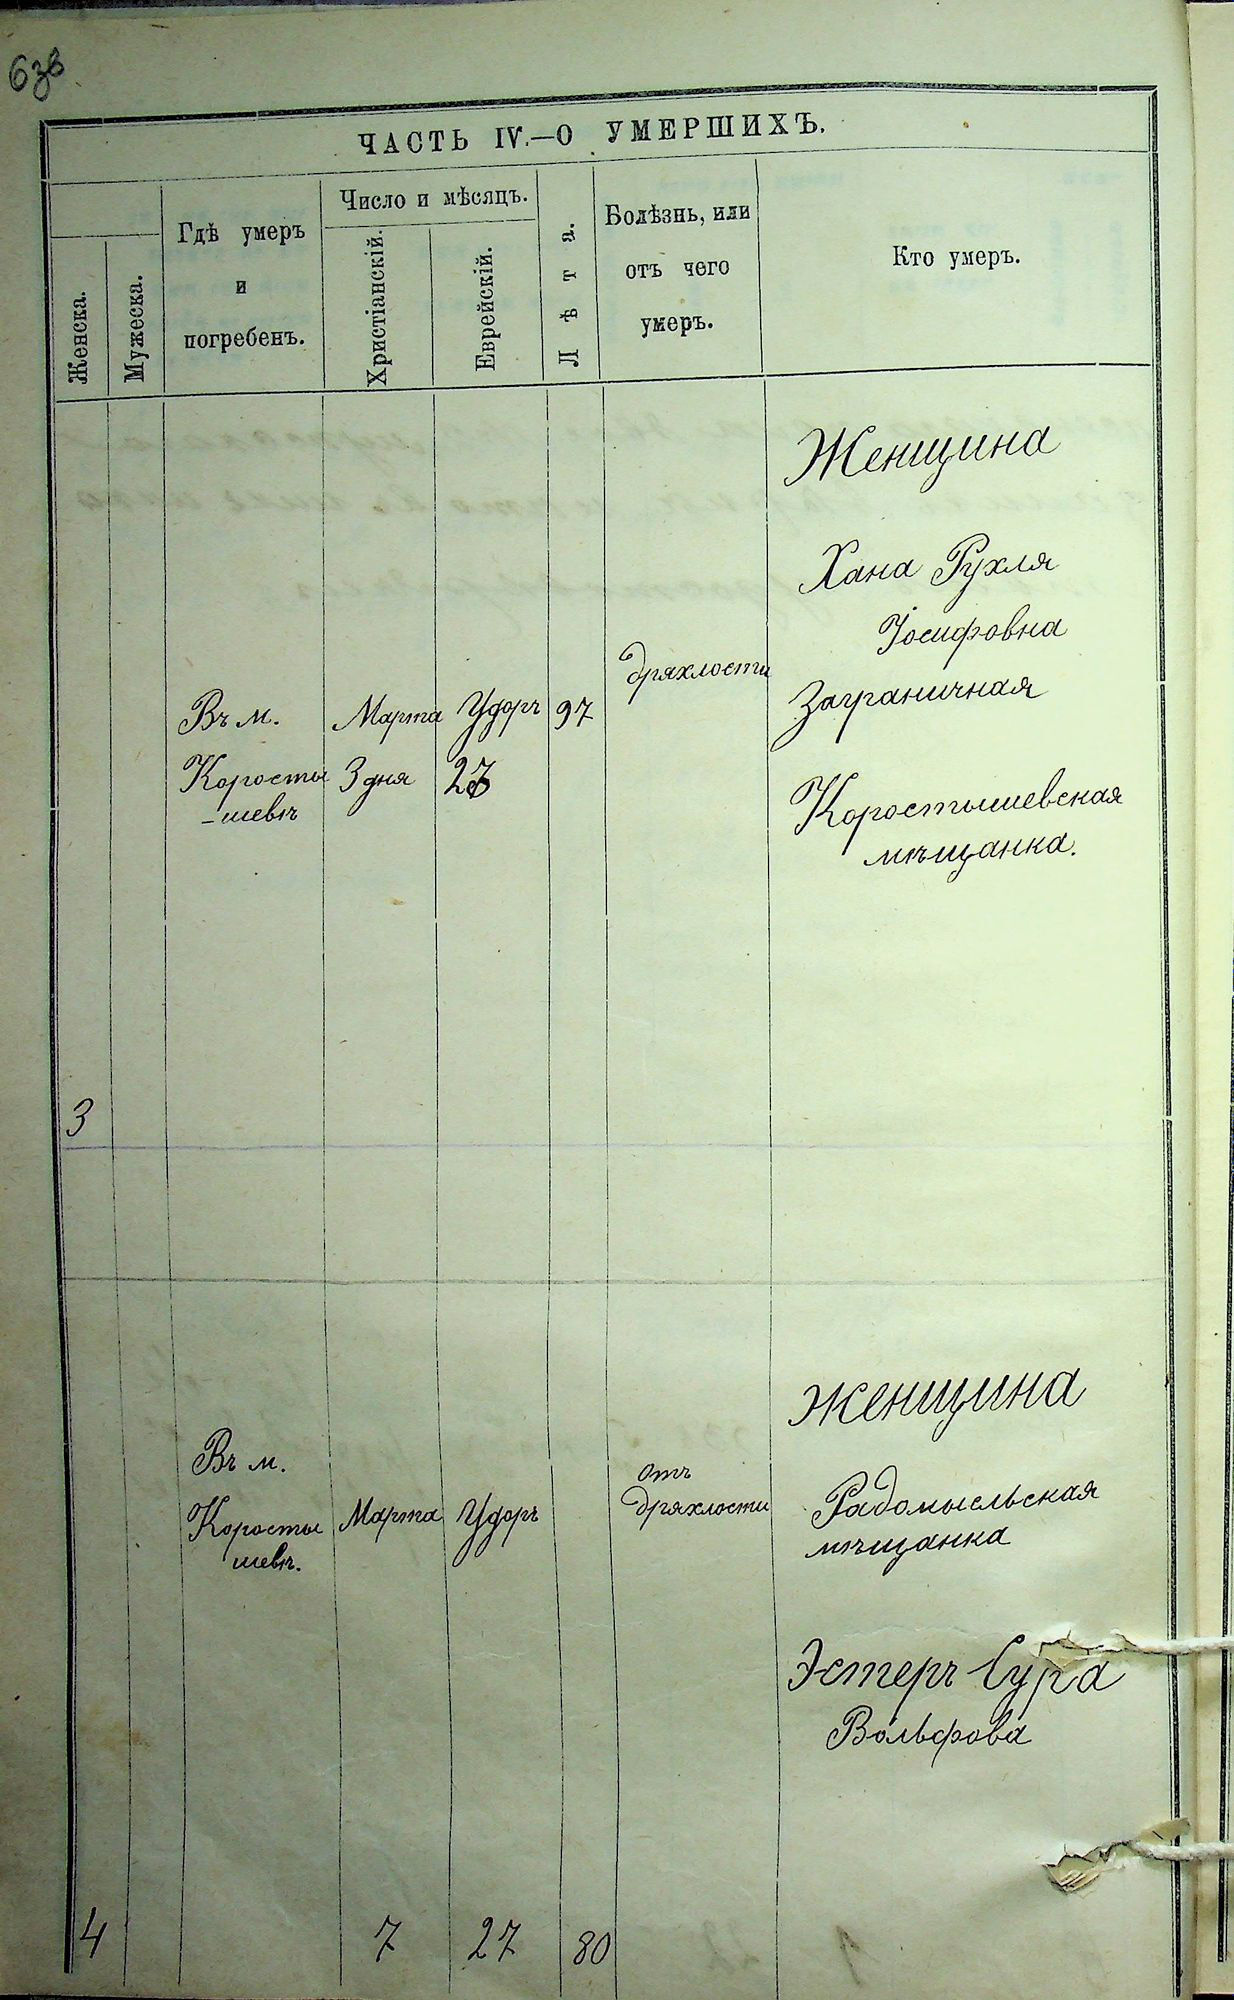 63в
ЧАСТЬ IV.—О УМЕРШИХЪ.
Женска.
Мужеска.
Гдѣ умеръ
и
погребенъ.
Число и мѣсяцъ.
Христіанскій.
Еврейскій.
Лѣта.
Болѣзнь, или
отъ чего
умеръ.
Кто умеръ.
Женщина
Хана Рухля
Іосифовна
дряхлости
Заграничная
Въ м. Марта Удоръ 97
Коросты 3 дня
-шевѣ
Коростышевская
мѣщанка.
3
Женщина
Въ м.
отъ
дряхлости
Коросты Марта Удоръ
шевѣ.
Радомысльская
мѣщанка
Эстеръ Сура
Вольфова
4 7 27 80